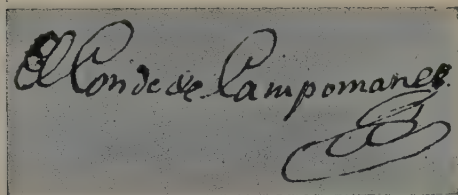 El Conde de Campomanes